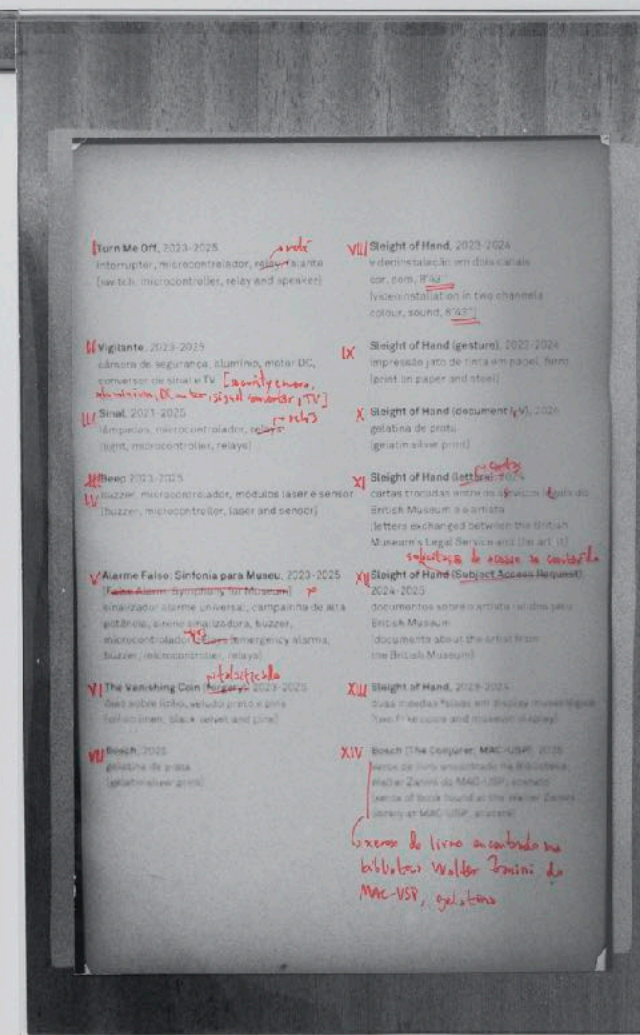 I Turn Me Off, 2023-2025
relé
interruptor, microcontrolador, relay, falante
(switch, microcontroller, relay and speaker)
II Vigilante, 2023-2025
câmera de segurança, alumínio, motor DC,
conversor de sinal e TV [security camera,
aluminium, DC motor, signal converter, TV]
III Sinal, 2021-2025
relés
lâmpadas, microcontrolador, relays
(light, microcontroller, relays)
IV Beep 2023-2025
buzzer, microcontrolador, módulos laser e sensor
(buzzer, microcontroller, laser and sensor)
V Alarme Falso: Sinfonia para Museu, 2023-2025
(False Alarm: Symphony for Museum)
sinalizador alarme universal, campainha de alta
potência, sirene sinalizadora, buzzer,
microcontrolador, relays (emergency alarms,
buzzer, microcontroller, relays)
VI The Vanishing Coin (forgery), 2023-2025
óleo sobre linho, veludo preto e pins
VII Bosch, 2025
gelatina de prata
(gelatin silver print)
VIII Sleight of Hand, 2023-2024
videoinstalação em dois canais
cor, som, 8'43"
(videoinstallation in two channels
colour, sound, 8'43")
IX Sleight of Hand (gesture), 2023-2024
impressão jato de tinta em papel, ferro
(print on paper and steel)
X Sleight of Hand (document I, V), 2025
gelatina de prata
(gelatin silver print)
cartas
XI Sleight of Hand (letters), 2024
cartas trocadas entre os serviços legais do
British Museum e o artista
(letters exchanged between the British
Museum's Legal Service and the artist)
solicitação de acesso ao conteúdo
XII Sleight of Hand (Subject Access Request),
2024-2025
documentos sobre o artista
British Museum
(documents about the artist from
the British Museum)
XIII Sleight of Hand, 2023-2024
duas moedas falsas em display museológico
(two fake coins and museum display)
XIV Bosch (The Conjurer, MAC-USP), 2025
xerox de livro encontrado na Biblioteca
Walter Zanini do MAC-USP, acetato
(xerox of book found at the Walter Zanini
Library at MAC-USP, acetate)
xerox de livro encontrado na
biblioteca Walter Zanini do
MAC-USP, gelatina